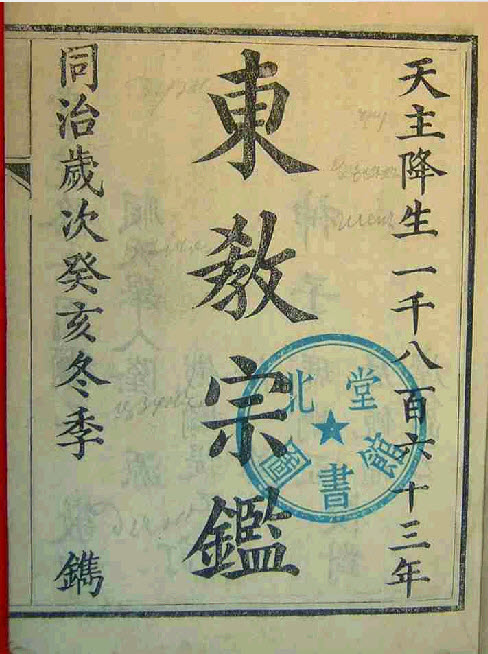 天主降生一千八百六十三年
東教宗鑑
同治歲次癸亥冬季 鐫
北堂圖書館